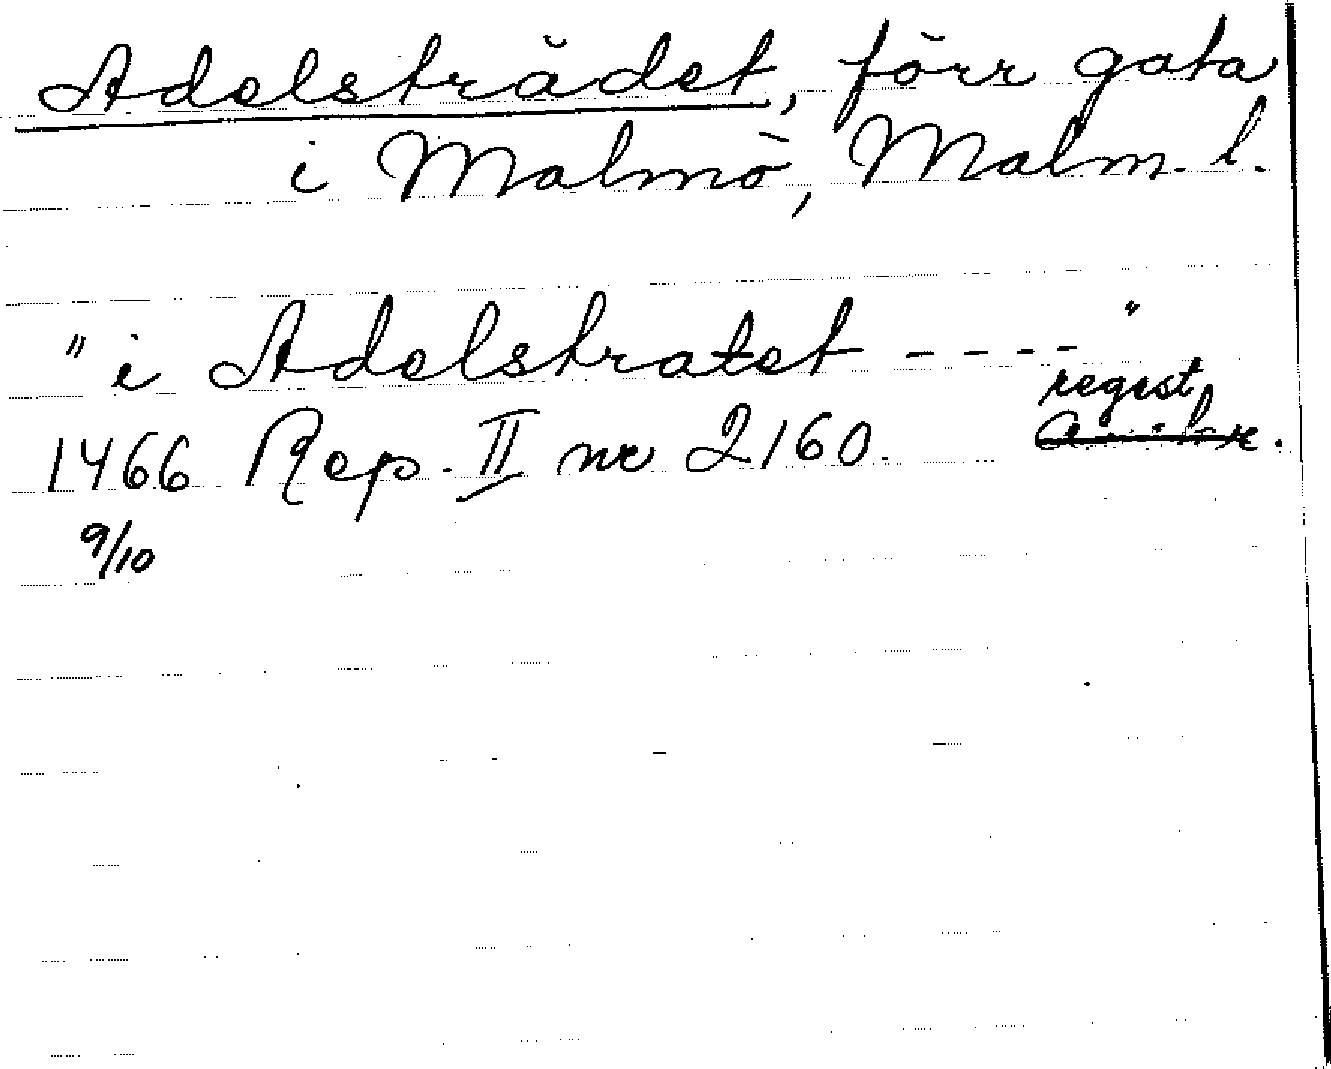 Adelsträdet, förr gata
i Malmö, Malm. l.
"i Adelstratet - - - - "
regest
1466 Rep. II nr 2160.
9/10